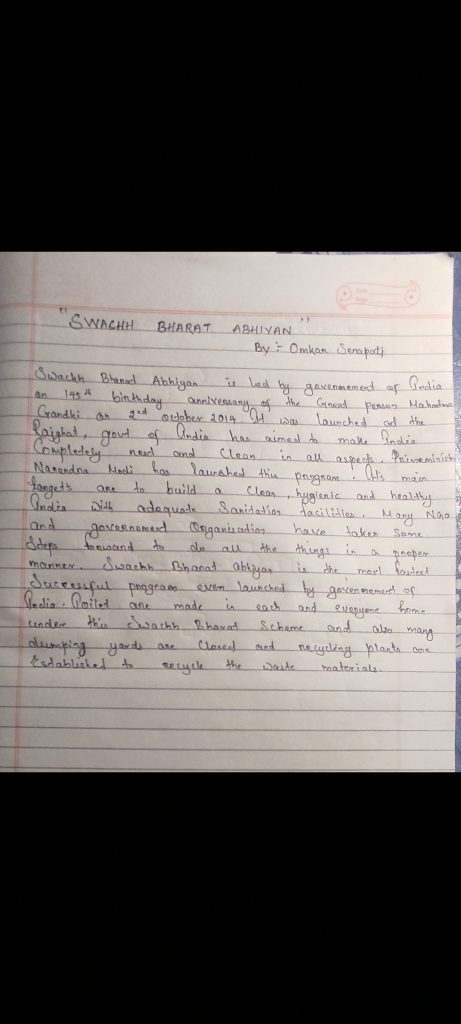 "SWACHH BHARAT ABHIYAN"
By :- Omkar Senapati
Swachh Bharat Abhiyan is led by governement of India
on 145th birthday anniversary of the Great person Mahatma
Grandhi on 2nd october 2014. It was launched at the
Rajghat, govt of India has aimed to make India
Completely neat and clean in all aspects. Primeminister
Narendra Modi has launched this program. It's main
targets are to build a clean, hygienic and healthy
India with adequate Sanitation facilities. Many NGO
and governement Organisation have taken some
Steps forward to do all the things in a proper
manner. Swachh Bharat abhiyan is the most
Successful program ever launched by governement of
India. are made in each and everyone home
under this Swachh Bharat Scheme and also many
dumping yards are closed and recycling plants are
Established to recycle the waste materials.